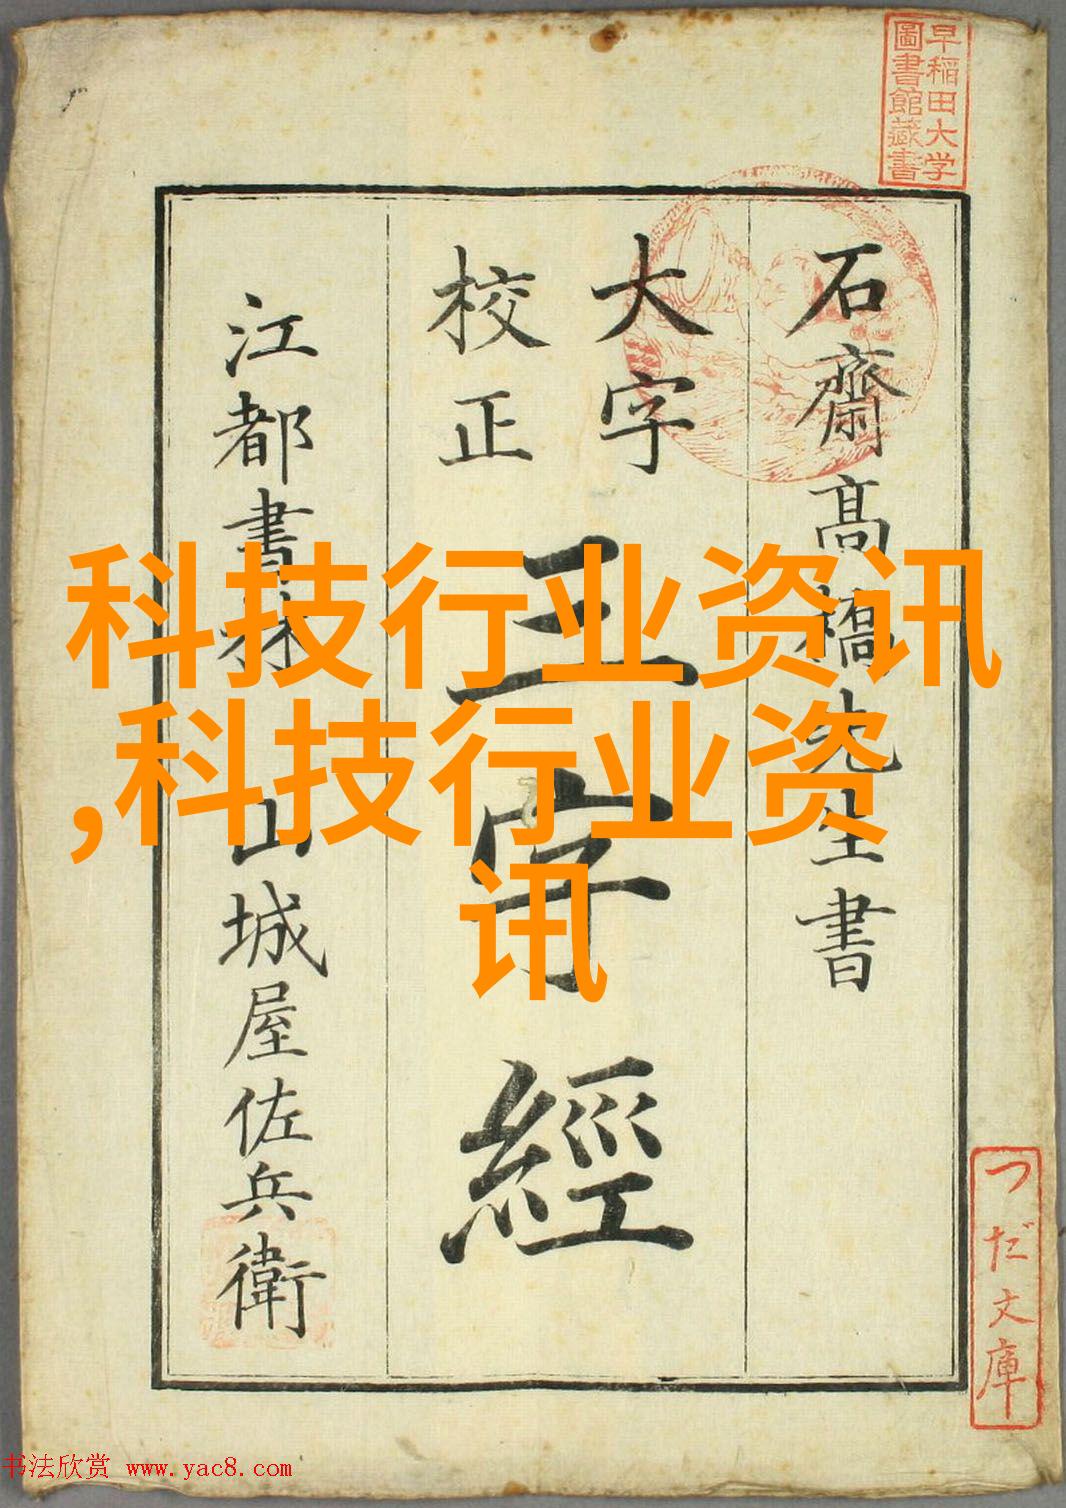 早稲田大学
圖書館蔵書
石齋髙橋先生書
大字
校正
三字經
江都書林 山城屋佐兵衛
科技行业资讯
,科技行业资
讯
つだ文庫
书法欣赏 www.yac8.com